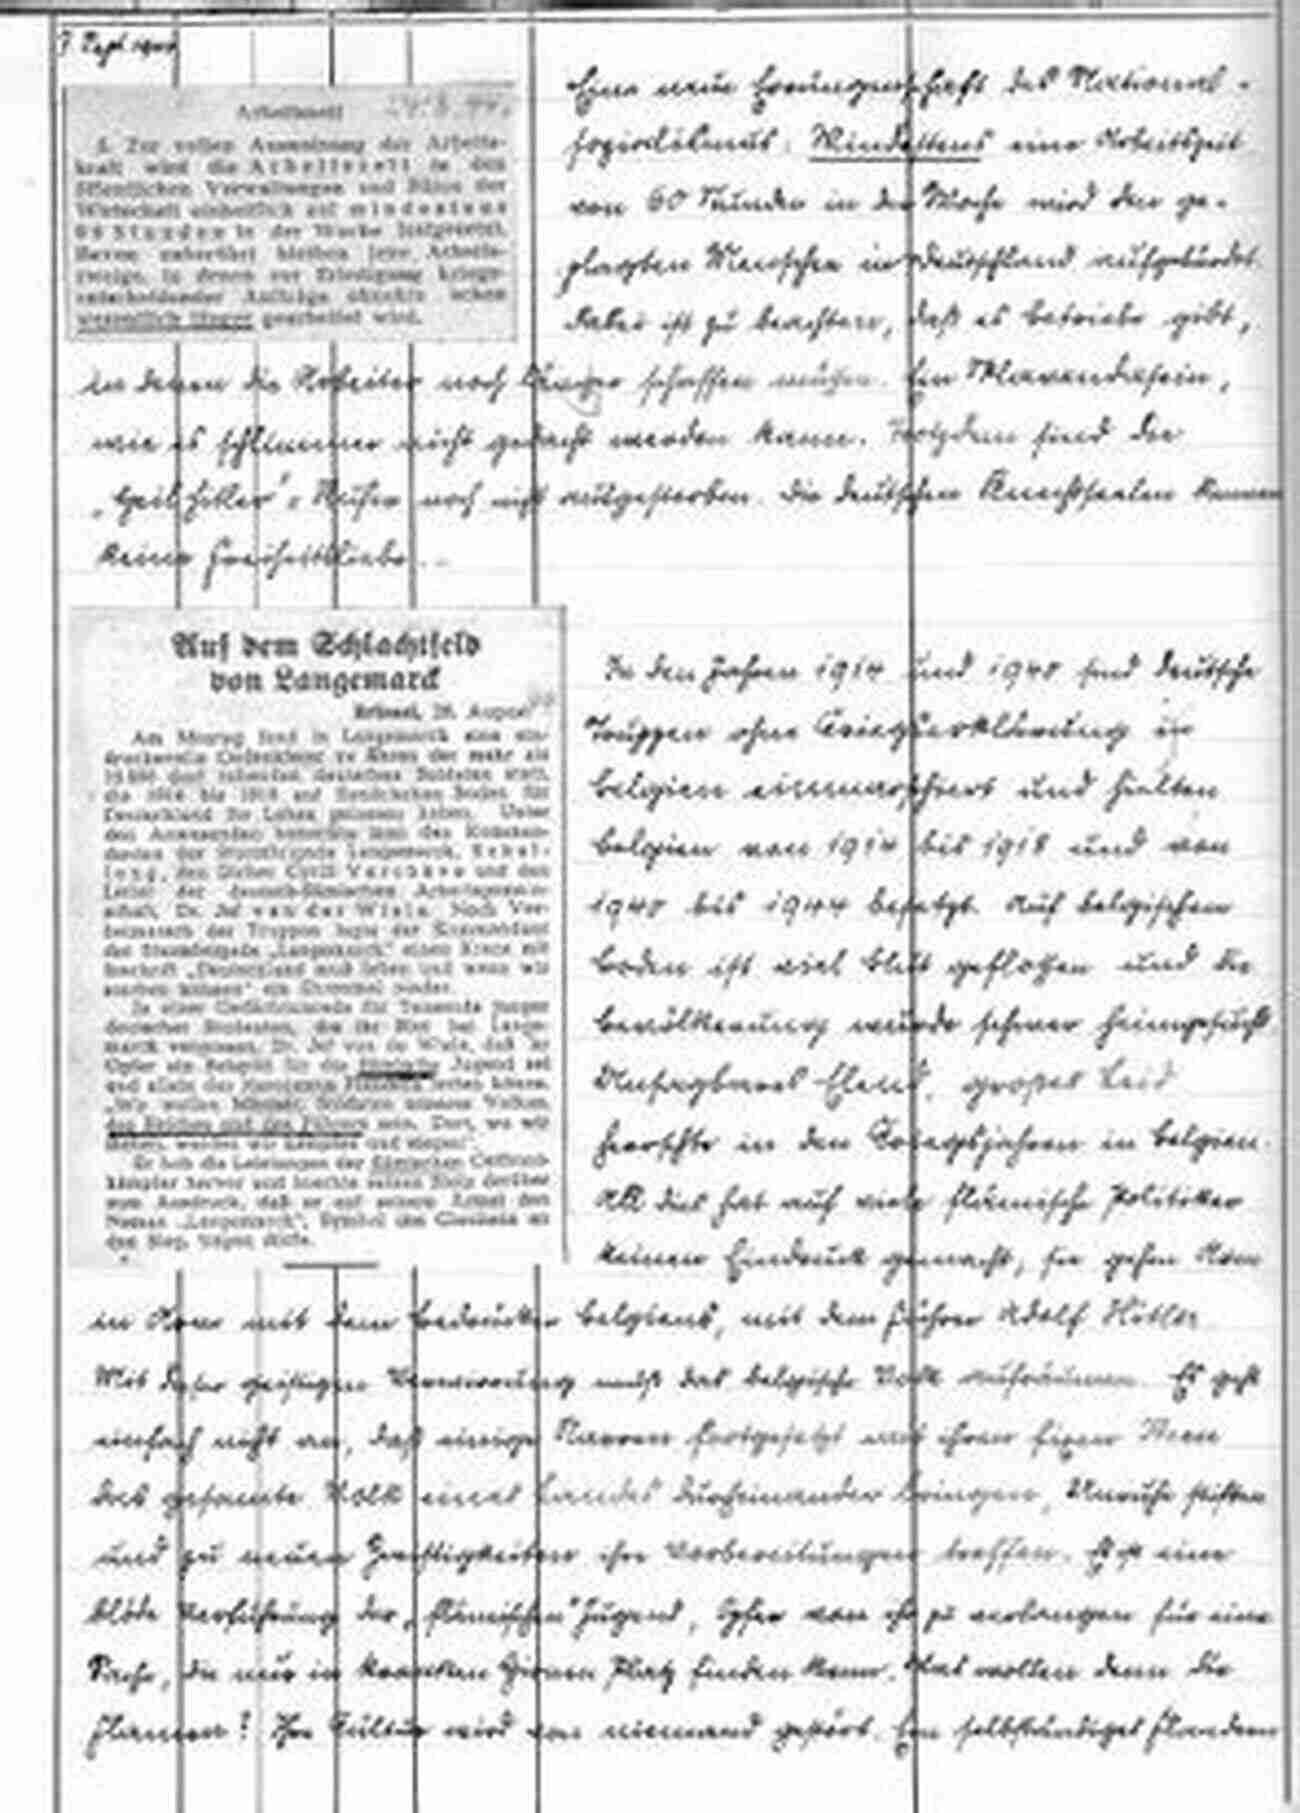 7. Sept. 1944
Arbeitszeit
5. Zur vollen Ausnutzung der Arbeits-
kraft wird die Arbeitszeit in den
öffentlichen Verwaltungen und Büros der
Wirtschaft einheitlich auf mindestens
60 Stunden in der Woche festgesetzt.
Hiervon unberührt bleiben jene Arbeits-
zweige, in denen zur Erledigung kriegs-
entscheidender Aufträge ohnehin schon
wesentlich länger gearbeitet wird.
Eine neue Errungenschaft des National-
sozialismus: Mindestens eine Arbeitszeit
von 60 Stunden in der Woche wird den ge-
plagten Menschen in Deutschland aufgebürdet.
Dabei ist zu beachten, daß es Betriebe gibt,
in denen die Arbeiter noch länger schaffen müssen. Ein Sklavendasein,
wie es schlimmer nicht gedacht werden kann. Trotzdem sind die
„Heil Hitler"-Rufer noch nicht ausgestorben. Die deutschen Knechtseelen kennen
keine Freiheitsliebe.
Auf dem Schlachtfeld
von Langemarck
Brüssel, 28. August
Am Montag fand in Langemarck eine ein-
drucksvolle Gedenkfeier zu Ehren der mehr als
dort ruhenden deutschen Soldaten statt,
die 1914 bis 1918 auf flandrischem Boden für
Deutschland ihr Leben gelassen haben. Unter
den Anwesenden bemerkte man den Komman-
deur der Sturmbrigade Langemarck, Schel-
long, den Dichter Cyriel Verschaeve und den
Leiter der deutsch-flämischen Arbeitsgemein-
schaft, Dr. Jef van der Wiele. Nach Vor-
beimarsch der Truppen legte der Kommandeur
der Sturmbrigade „Langemarck" einen Kranz mit
Inschrift „Deutschland muß leben und wenn wir
sterben müssen" am Ehrenmal nieder.
In einer Gedächtnisrede für Tausende junger
deutscher Studenten, die ihr Blut bei Lange-
marck vergossen, Dr. Jef van de Wiele, daß ihr
Opfer ein Beispiel für die flämische Jugend sei
„Wir wollen Soldaten unseres Volkes,
des Reiches und des Führers sein. Dort, wo wir
stehen, werden wir kämpfen und siegen!"
Er hob die Leistungen der flämischen Ostfront-
kämpfer hervor und brachte seinen Stolz darüber
zum Ausdruck, daß er auf seinem Ärmel den
Namen „Langemarck", Symbol des Glaubens an
den Sieg, tragen dürfe.
In den Jahren 1914 und 1940 sind deutsche
Truppen ohne Kriegserklärung in
Belgien einmarschiert und hielten
Belgien von 1914 bis 1918 und von
1940 bis 1944 besetzt. Auf belgischem
Boden ist viel Blut geflossen und die
Bevölkerung wurde schwer heimgesucht.
Unsagbares Elend, großes Leid
herrschte in den Kriegsjahren in Belgien.
All dies hat auf viele flämische Politiker
keinen Eindruck gemacht, sie gehen Arm
in Arm mit dem Bedrücker Belgiens, mit dem Führer Adolf Hitler.
Mit dieser geistigen Verwirrung muß das belgische Volk aufräumen. Es geht
einfach nicht an, daß einige Narren fortgesetzt mit ihren fixen Ideen
das gesamte Volk eines Landes durcheinander bringen, Unruhe stiften
und zu neuen Zwistigkeiten ihre Vorbereitungen treffen. Es ist eine
blöde Verführung der „flämischen" Jugend, Opfer von ihr zu verlangen für eine
Sache, die nur in kranken Hirnen Platz finden kann. Was wollen denn die
Flamen? Ihre Kultur wird von niemand gestört. Ein selbständiges Flandern